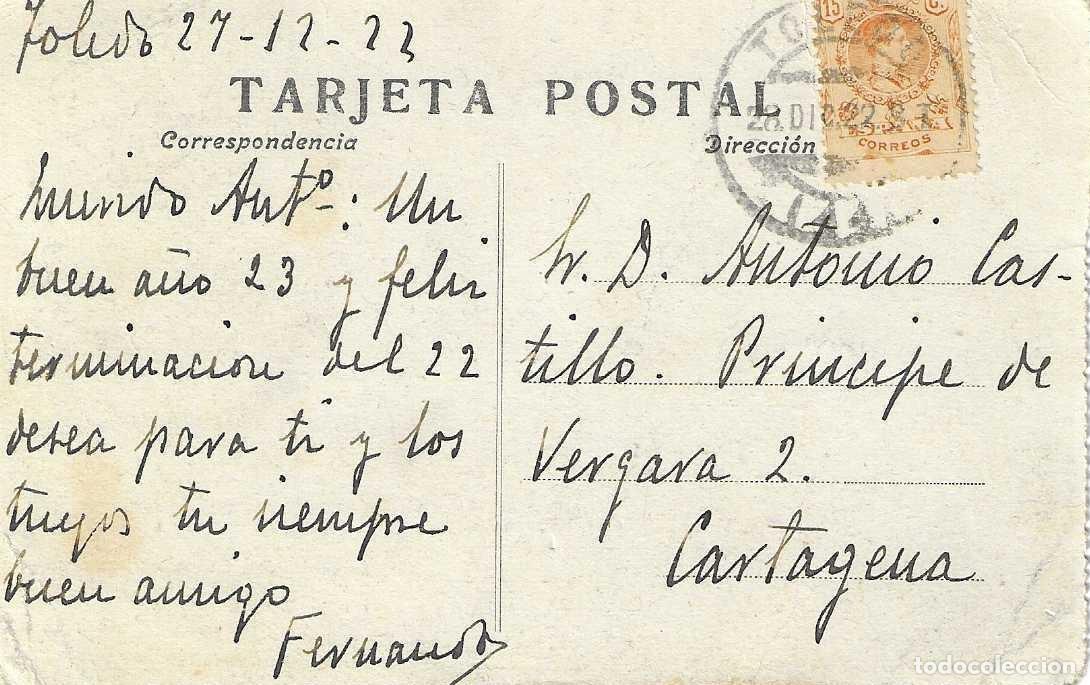 Toledo 27-12-22
TARJETA POSTAL
Correspondencia
Dirección
15 Cs
CORREOS
28.DIC.22
Antº: Un
buen año 23 y feliz
terminacion del 22
desea para ti y los
tuyos tu siempre
buen amigo
Fernando
Sr. D. Antonio Cas-
tillo. Principe de
Vergara 2.
Cartagena
todocoleccion